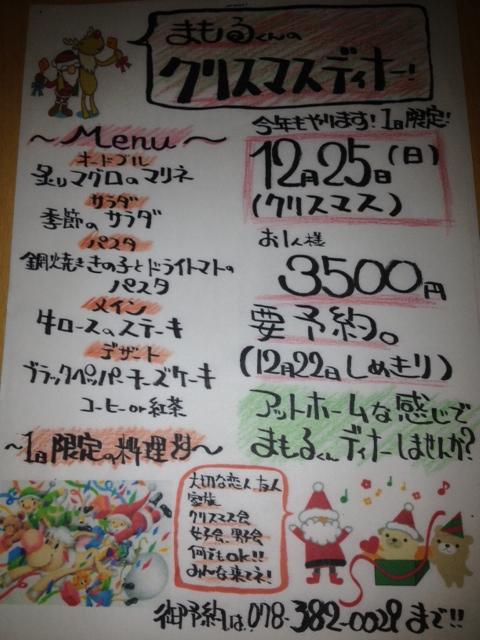 まもるくんの
クリスマスディナー!
今年もやります!1日限定!
12月25日(日)
(クリスマス)
お1人様
3500円
要予約。
(12月22日しめきり)
アットホームな感じで
まもるくんディナーしませんか?
~Menu~
オードブル
炙りマグロのマリネ
サラダ
季節のサラダ
パスタ
鍋焼ききの子とドライトマトの
パスタ
メイン
牛ロースのステーキ
デザート
ブラックペッパーチーズケーキ
コーヒーor紅茶
~1日限定の料理
大切な恋人、友人
家族
クリスマス会
女子会、男子会
何でもok!!
みんな来てネ!
御予約は、078-382-0029まで!!